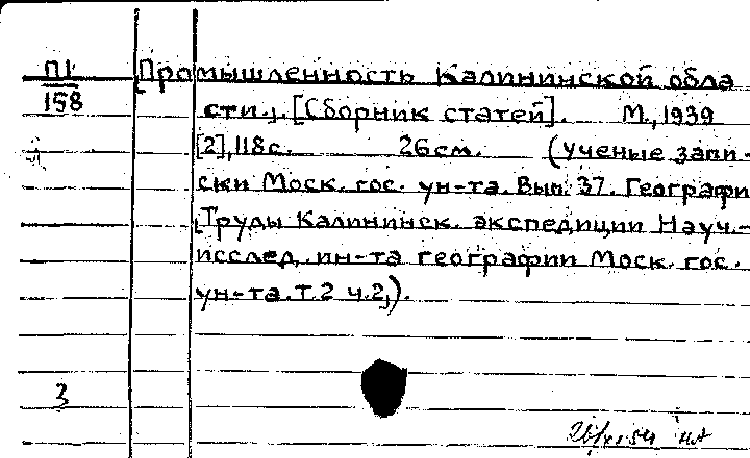 П1
158
Промышленность Калининской обла
сти. [Сборник статей]. М., 1939
[2], 118с. 26см. (ученые запи-
ски Моск. гос. ун-та. Вып. 37. Географи
Труды Калининск. экспедиции Науч.-
исслед. ин-та географии Моск. гос.
ун-та. Т. 2 ч. 2.).
3